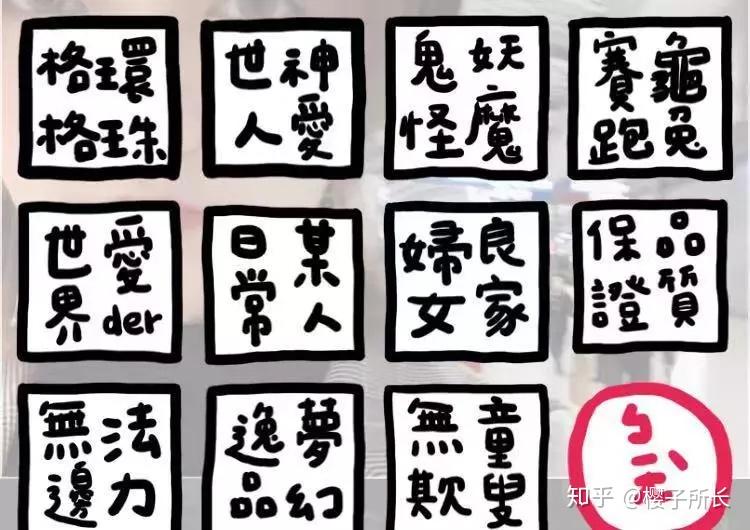 環珠格格
神愛世人
妖魔鬼怪
龜兔賽跑
愛der世界
某人日常
良家婦女
品質保證
法力無邊
夢幻逸品
童叟無欺
知乎 @樱子所长